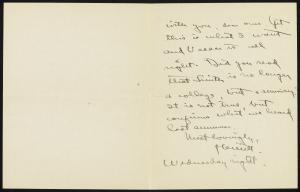 with you, our own. Yet
this is what I want
and it is all
right. Did you read
that Smith is no longer
a college, but a seminary?
It is not true, but
confirms what we heard
last summer.
Most lovingly,
Wednesday night